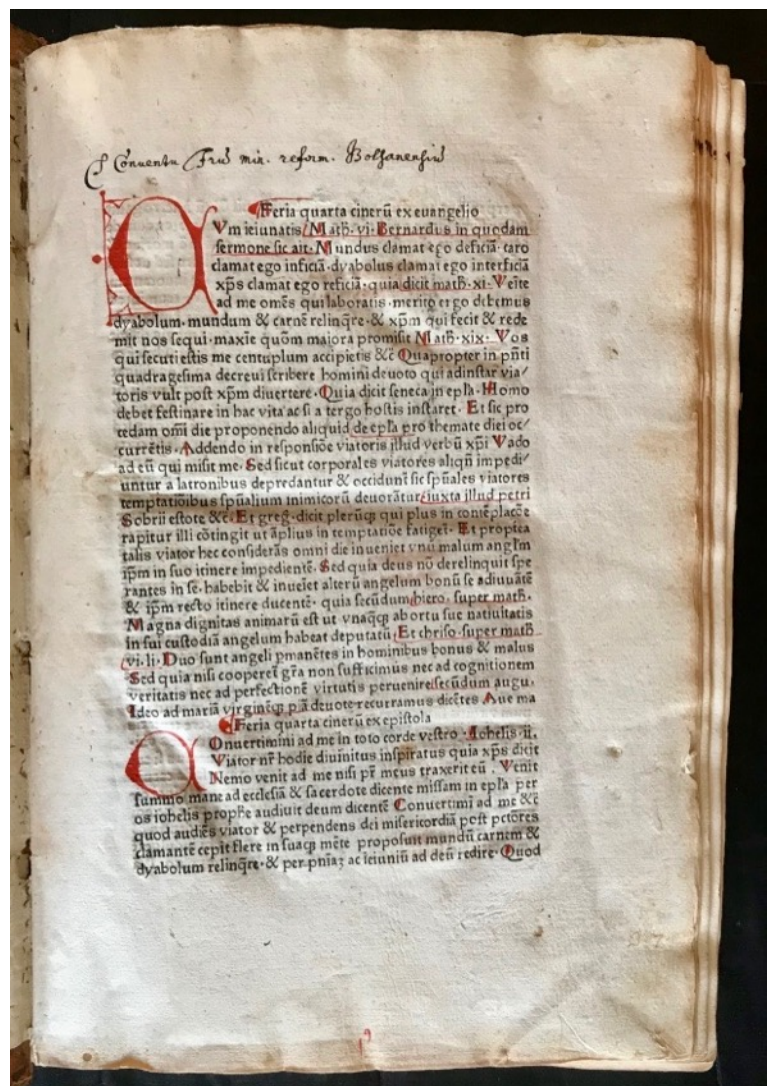 Conventu Frũ min. reform. Bolsanensiũ
Feria quarta cinerũ ex euangelio
Cvm ieiunatis Math̄·vi·Bernardus in quodam
sermone sic ait·Mundus clamat ego deficiā·caro
clamat ego inficiā·dyabolus clamat ego interficiā
xp̄s clamat ego reficiā·quia dicit math̄·xi·Veīte
ad me omēs qui laboratis·merito ergo debemus
dyabolum·mundum & carnē relinq̄re·& xp̄m qui fecit & rede
mit nos sequi·maxīe quōm majora promisit Math̄·xix·Vos
qui secuti estis me centuplum accipietis &c̄ Quapropter in pn̄ti
quadragesima decreui scribere homini deuoto qui adinstar via/
toris vult post xp̄m diuertere·Quia dicit seneca in ep̄la·Homo
debet festinare in hac vita ac si a tergo hostis instaret·Et sic pro
cedam om̄i die proponendo aliquid de ep̄la pro themate diei oc/
currētis·Addendo in responsiōe viatoris illud verbū xp̄i Vado
ad eū qui misit me·Sed sicut corporales viatores aliqn̄ impedi/
untur a latronibus depredantur & occidunt̄ sic sp̄uales viatores
temptatiōibus sp̄ualium inimicorū deuorātur·iuxta illud petri
Sobrii estote &c̄·Et greg̃·dicit plerūq̨ qui plus in contēplacōe
rapitur illi cōtingit ut āplius in temptatiōe fatiget̄·Et proptea
talis viator hec considerās omni die inueniet vnū malum angl̄m
ip̄m in suo itinere impedientē·Sed quia deus nō derelinquit spe
rantes in se·habebit & inueīet alterū angelum bonū se adiuuātē
& ip̄m recto itinere ducentē·quia secūdum hiero·super math̄·
Magna dignitas animarū est ut vnaq̄q̨ ab ortu sue natiuitatis
in sui custodiā angelum habeat deputatū·Et chriso·super math̄
vi·li·Duo sunt angeli pmanētes in hominibus bonus & malus
Sed quia nisi cooperet̄ gr̄a non sufficimus nec ad cognitionem
veritatis nec ad perfectionē virtutis peruenire secūdum augu·
Ideo ad mariā virginēq̨ p̄ ā deuote recurramus dicētes Aue ma
Feria quarta cinerū ex epistola
Conuertimini ad me in toto corde vestro·Iohelis·ii·
Viator nr̄ hodie diuinitus inspiratus quia xp̄s dicit
Nemo venit ad me nisi pr̄ meus traxerit eū·Venit
summo mane ad ecclesiā & sacerdote dicente missam in ep̄la per
os iohelis prophe audiuit deum dicentē Conuertimī ad me &c̄
quod audiēs viator & perpendens dei misericordiā post pctōres
clamantē cepit flere in suaq̨ mēte proposuit mundū carnem &
dyabolum relinq̄re·& per pn̄iaʒ ac ieiuniū ad deū redire·Quod